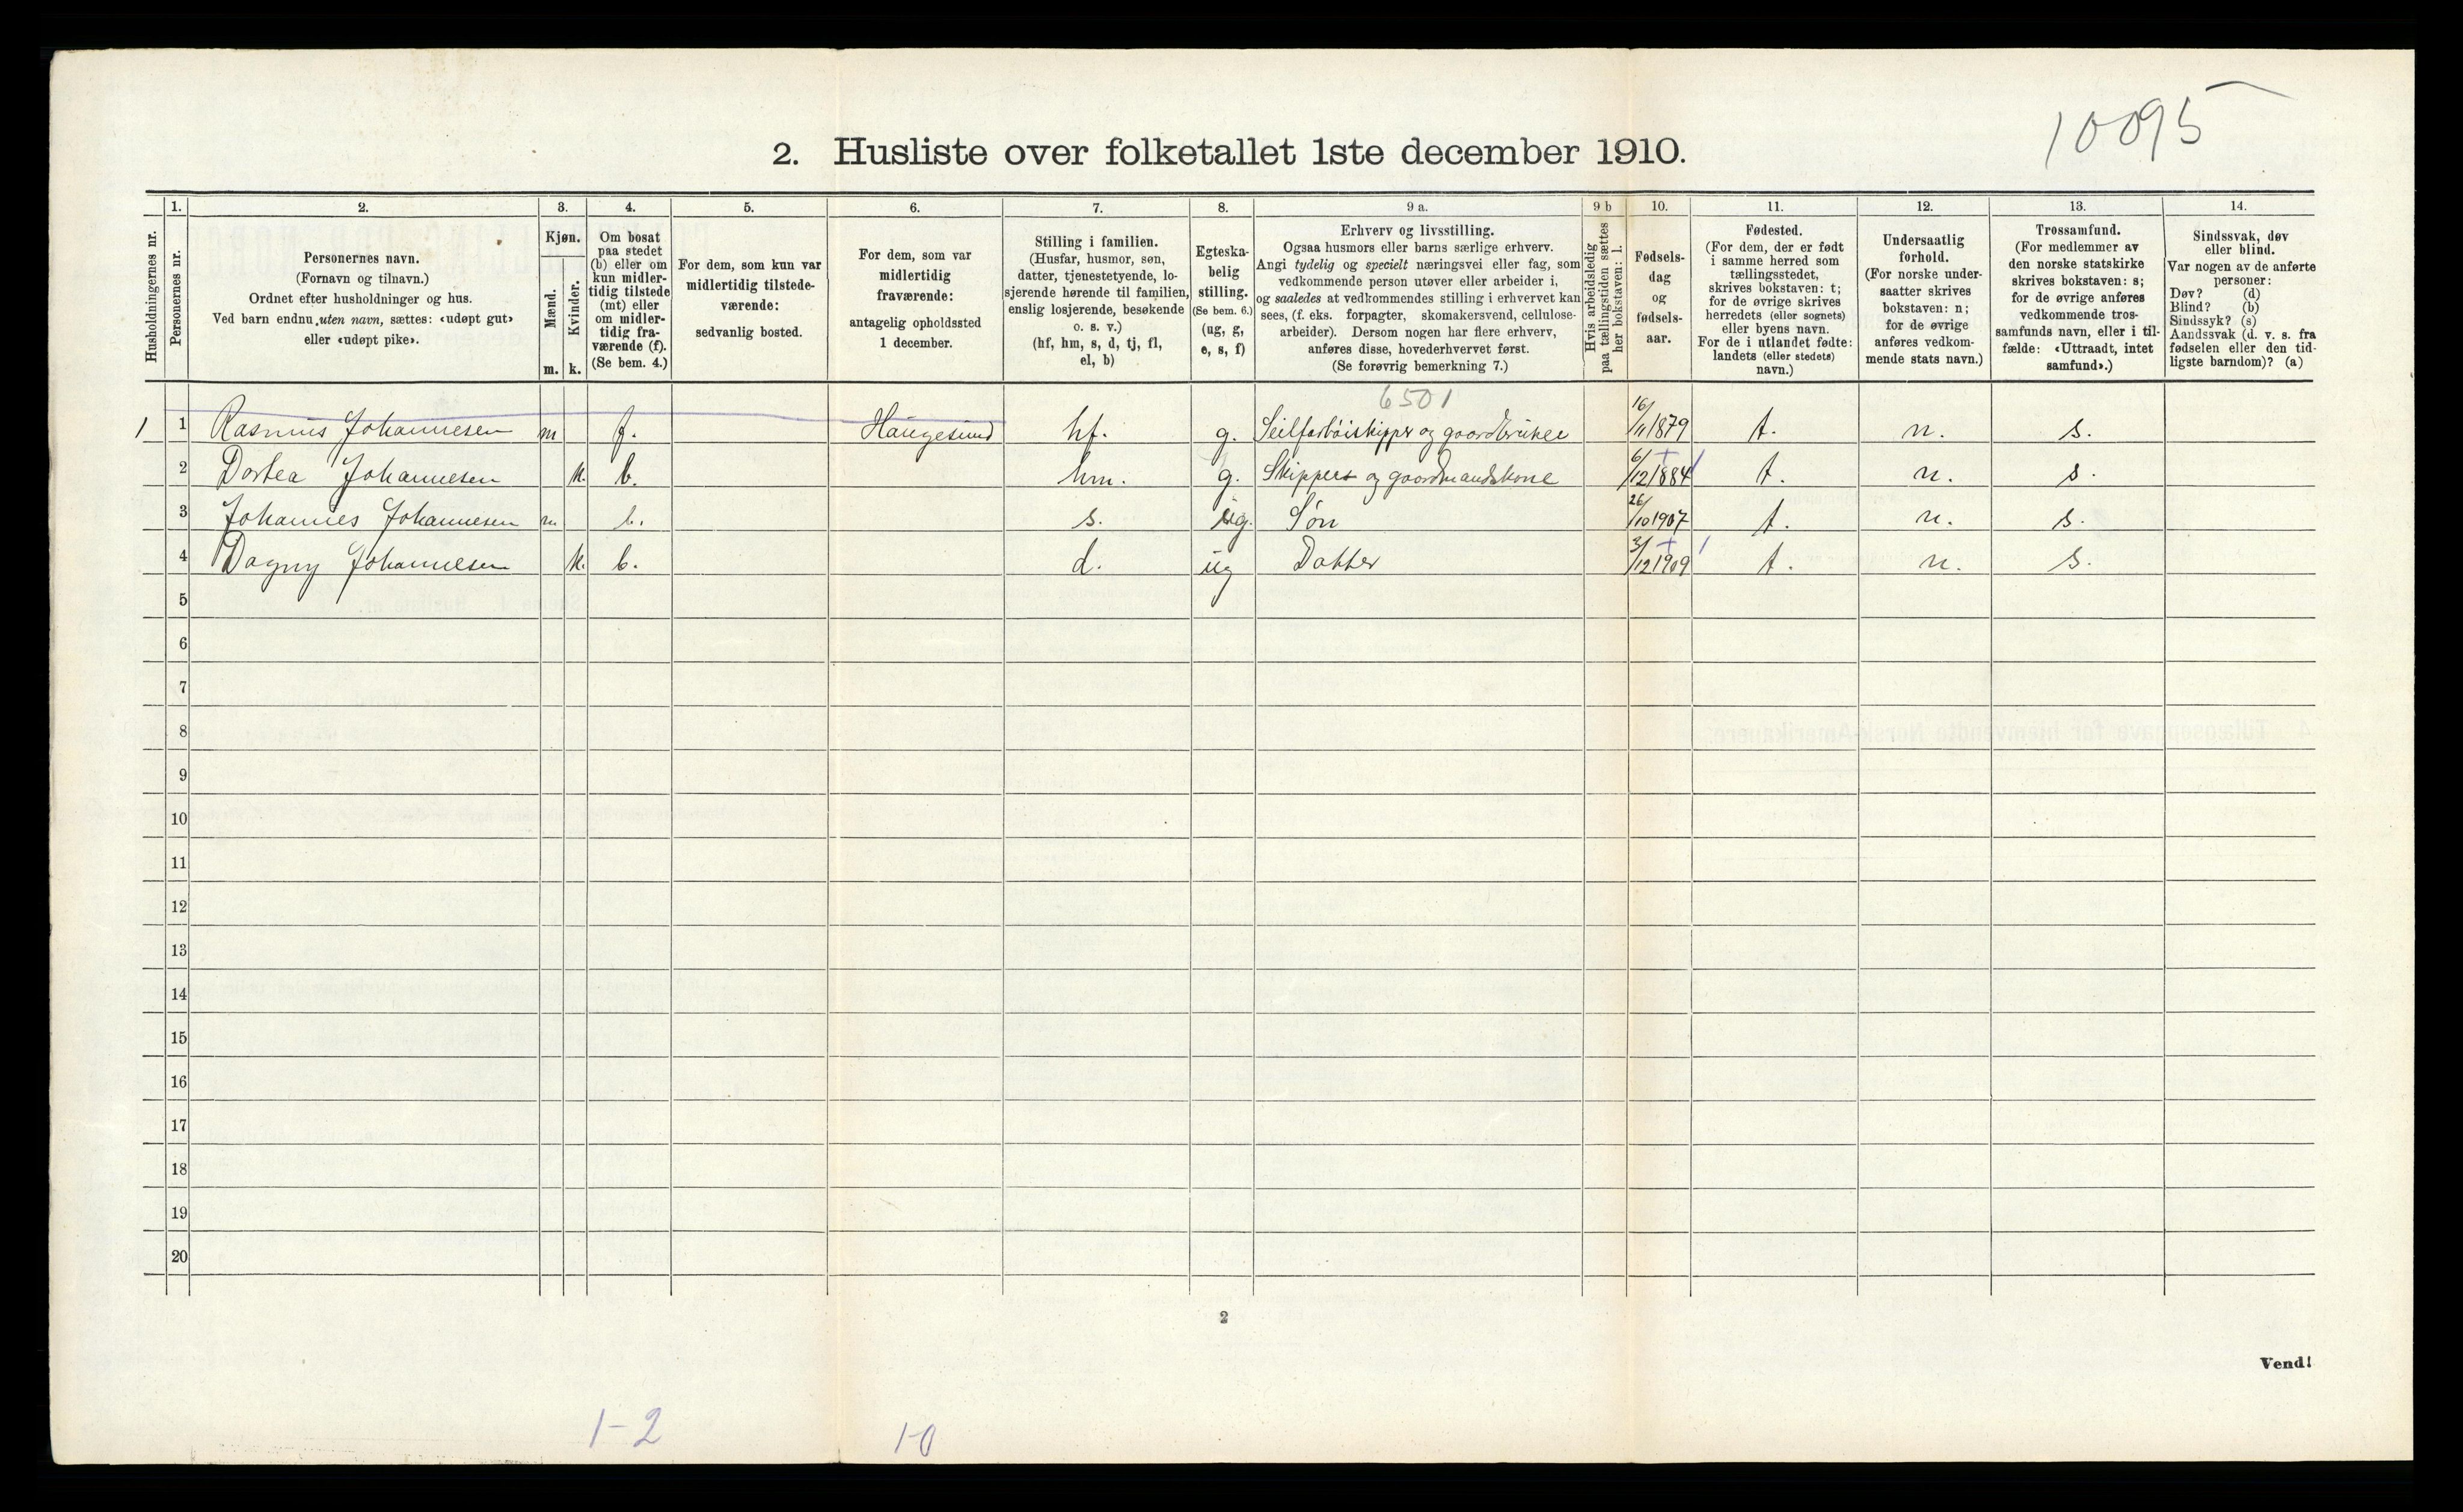 10095
2. Husliste over folketallet 1ste december 1910.
Husholdningernes nr.
1.
Personernes nr.
2.
Personernes navn.
(Fornavn og tilnavn.)
Ordnet efter husholdninger og hus.
Ved barn endnu uten navn, sættes: «udøpt gut»
eller «udøpt pike».
3.
Kjøn.
Mænd.
Kvinder.
m. k.
4.
Om bosat
paa stedet
(b) eller om
kun midler-
tidig tilstede
(mt) eller
om midler-
tidig fra-
værende (f).
(Se bem. 4.)
5.
For dem, som kun var
midlertidig tilstede-
værende:
sedvanlig bosted.
6.
For dem, som var
midlertidig
fraværende:
antagelig opholdssted
1 december.
7.
Stilling i familien.
(Husfar, husmor, søn,
datter, tjenestetyende, lo-
sjerende hørende til familien,
enslig losjerende, besøkende
o. s. v.)
(hf, hm, s, d, tj, fl,
el, b)
8.
Egteska-
belig
stilling.
(Se bem. 6.)
(ug, g,
e, s, f)
9 a.
Erhverv og livsstilling.
Ogsaa husmors eller barns særlige erhverv.
Angi tydelig og specielt næringsvei eller fag, som
vedkommende person utøver eller arbeider i,
og saaledes at vedkommendes stilling i erhvervet kan
sees, (f. eks. forpagter, skomakersvend, cellulose-
arbeider). Dersom nogen har flere erhverv,
anføres disse, hovederhvervet først.
(Se forøvrig bemerkning 7.)
9 b
Hvis arbeidsledig
paa tællingstiden sættes
her bokstaven: l.
10.
Fødsels-
dag
og
fødsels-
aar.
11.
Fødested.
(For dem, der er født
i samme herred som
tællingsstedet,
skrives bokstaven: t;
for de øvrige skrives
herredets (eller sognets)
eller byens navn.
For de i utlandet fødte:
landets (eller stedets)
navn.)
12.
Undersaatlig
forhold.
(For norske under-
saatter skrives
bokstaven: n;
for de øvrige
anføres vedkom-
mende stats navn.)
13.
Trossamfund.
(For medlemmer av
den norske statskirke
skrives bokstaven: s;
for de øvrige anføres
vedkommende tros-
samfunds navn, eller i til-
fælde: «Uttraadt, intet
samfund».)
14.
Sindssvak, døv
eller blind.
Var nogen av de anførte
personer:
Døv? (d)
Blind? (b)
Sindssyk? (s)
Aandssvak (d. v. s. fra
fødselen eller den tid-
ligste barndom)? (a)
6501
1 1 Rasmus Johannesen m f. Haugesund hf. g. Seilfartøiskipper og gaardbruker 16/11 1879 t. n. s.
2 Dortea Johannesen k. b. hm. g. Skippers og gaardmandskone 6/12 1884 t. n. s.
3 Johannes Johannesen m b. s. ug. Søn 26/10 1907 t. n. s.
4 Dagny Johannesen k. b. d. ug Datter 3/12 1909 t. n. s.
5
6
7
8
9
10
11
12
13
14
15
16
17
18
19
20
2
Vend!
1-2 1-0